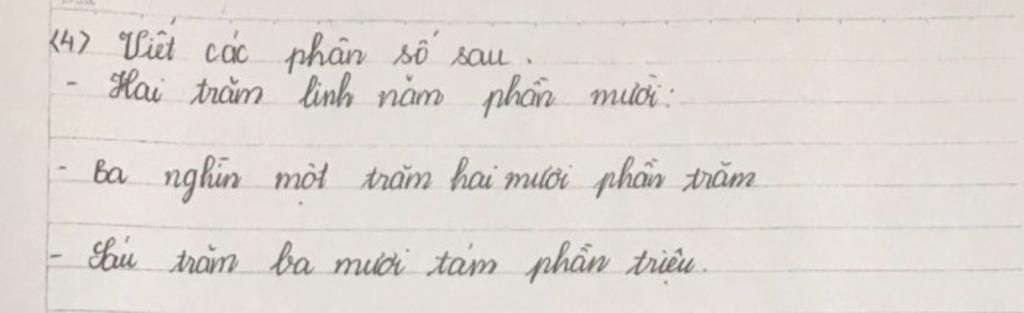 <4> Viết các phân số sau.
- Hai trăm linh năm phần mười:
- Ba nghìn một trăm hai mươi phần trăm
- Sáu trăm ba mươi tám phần triệu.